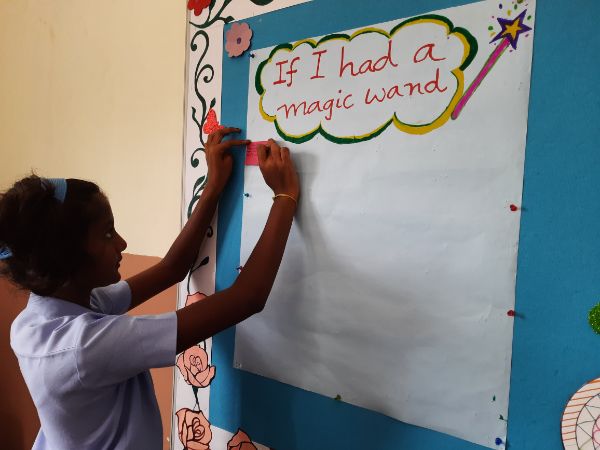 If I had a
magic wand